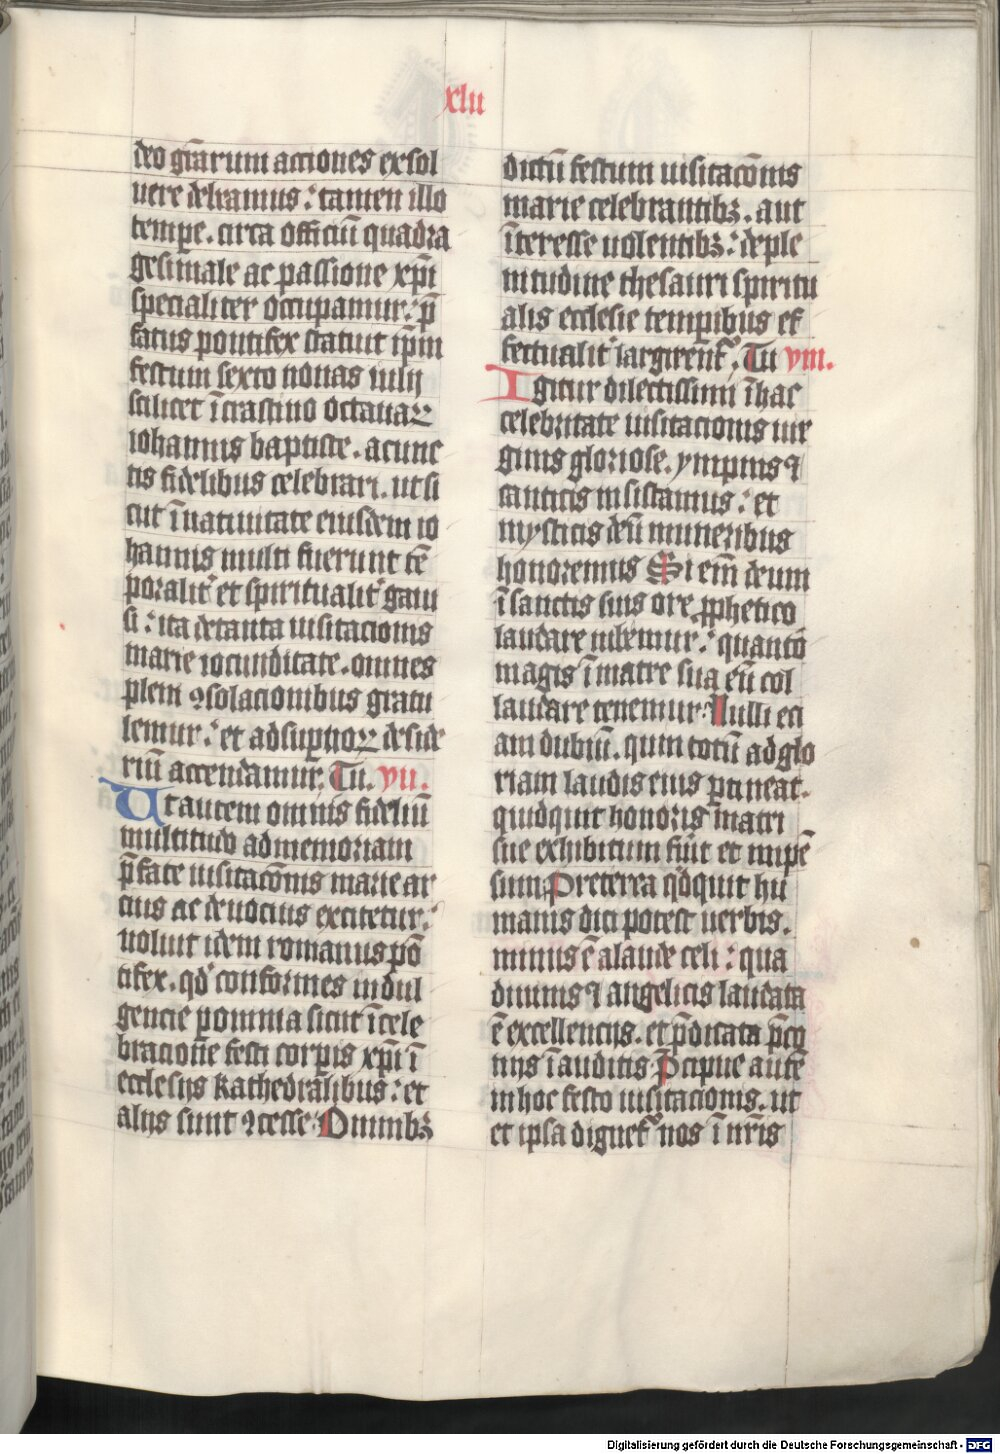 xlii
deo gr̄arum acciones exsol
uere debeamus: tamen illo
tempe. circa officiū quadra
gesimale ac passione xp̄i
specialiter occupamur: p̄
fatus pontifex statuit ip̄m
festum sexto nonas iulij
scilicet ī crastino octauaꝝ
iohannis baptiste. a cunc
tis fidelibus celebrari. ut si
cut ī natiuitate eiusdem io
hannis multi fuerunt tē
poralit᷑ et spiritualit᷑ gaui
si: ita de tanta uisitacionis
marie iocunditate. omnes
pleni ꝯsolacionibus gratu
lemur: et ad sup̲noꝝ deside
riū accendamur. Tu. vii.
Ut autem omnis fideliū
multitudo ad memoriam
p̄fate uisitacōnis marie ar
cius ac deuocius excitetur:
uoluit idem romanus pō
tifex. qd̓ conformes indul
gencie pomnia sicut ī cele
bracione festi corpis xp̄i ī
ecclesijs kathedralibus: et
alijs sunt ꝯcesse. Omnibꝫ
dictū festum uisitacōnis
marie celebrantibꝫ. aut
īteresse uolentibꝫ: de ple
nitudine thesauri spiritu
alis ecclesie tempibus ef
fectualit᷑ largirent᷑. Tu viii.
Igitur dilectissimi ī hac
celebritate uisitacionis uir
ginis gloriose. ympnis ꝯ
canticis insistamus: et
mysticis deū muneribus
honoremus Si eīm deum
ī sanctis suis ore ꝓphetico
laudare iubemur: quanto
magis ī matre sua eū col
laudare tenemur. Nulli eci
am dubiū. quin totū ad glo
riam laudis eius p̲tineat.
quidquit honoris matri
sue exhibitum fūit et inpē
sum Preterea qd̓quit hu
manis dici potest uerbis.
minus ē a laude celi: qua
diuinis ꝯ angelicis laudata
ē excellencijs. et p̄dicata p̄co
nijs ī auditis P̄cipue autē
in hoc festo uisitacionis. ut
et ipsa diguet᷑ nos ī nr̄is